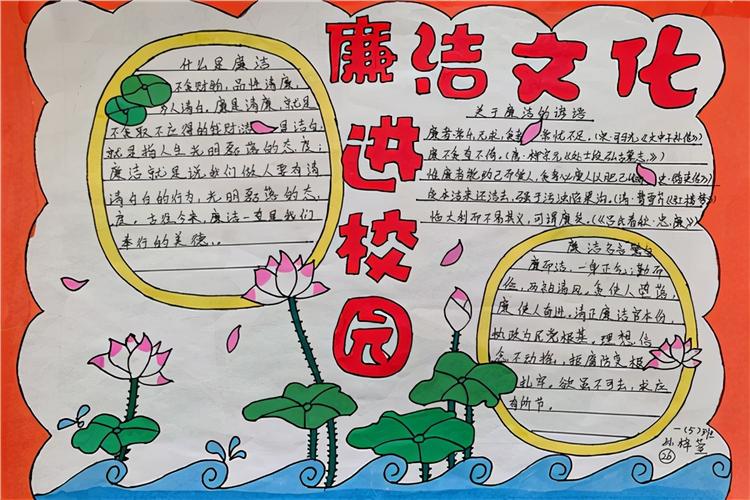 廉洁文化
进校园
什么是廉洁
不贪财物，品性清廉，
人清白，廉是清廉，就是
不贪取不应得的钱财；洁是洁白，
就是指人生光明磊落的态度；
廉洁就是说我们做人要有清
清白白的行为，光明磊落的态
度，古往今来，廉洁一直是我们
奉行的美德。
关于廉洁的谚语
廉者常乐无求，贪者常忧不足。
廉不贪
性廉者
质本洁来还洁去，强于污淖陷渠沟。（清·曹雪芹《红楼梦》）
临大利而不易其义，可谓廉矣。（《吕氏春秋·忠廉》）
廉洁名言警句
廉而洁，一身正气；勤而
俭，两袖清风。贪使人堕落，
廉使人奋进。清正廉洁官本份，
执政为民党根基。理想信
念不动摇，拒腐防变根
扎牢。欲虽不可去，求应
有所节。
一（5）班
孙梓萱
26